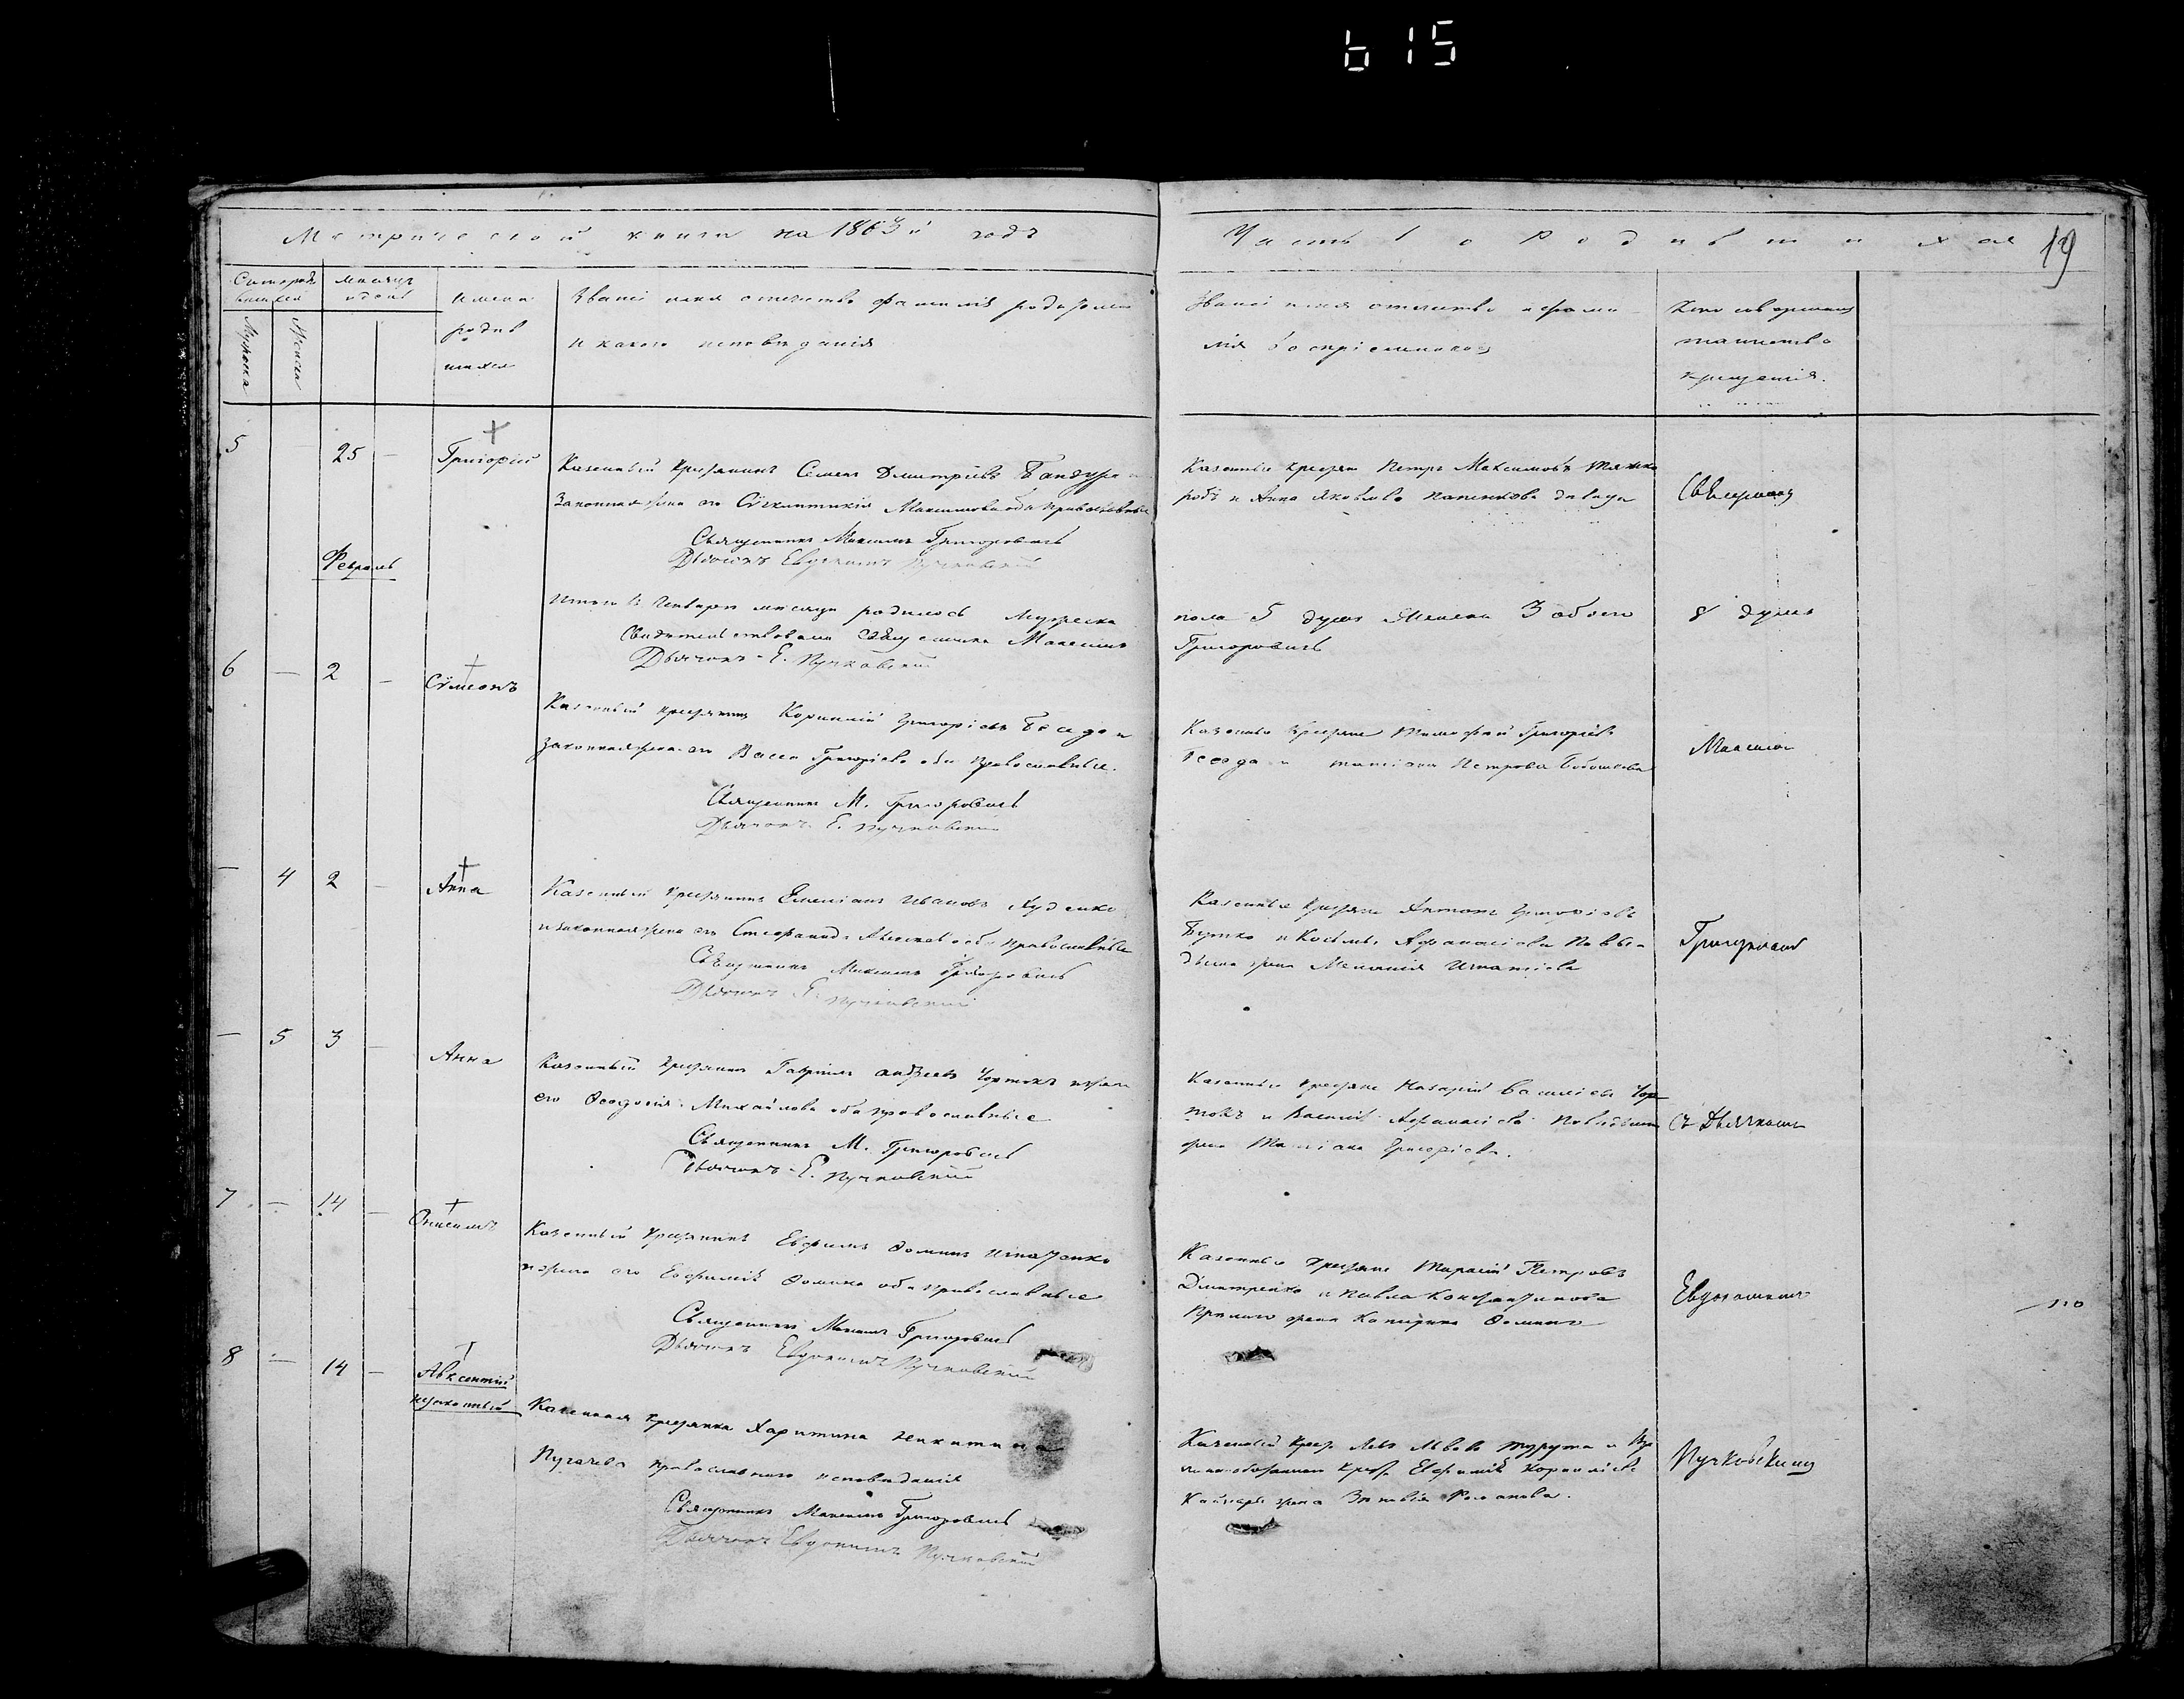 615
Метрической книги на 1863й годъ
Часть 1 о Родившихся
19
Счетъ родившихся
Мужеска
Женска
месяцъ и день
имена родившихся
Званіе имя отчество фамилія родителей
и какого исповеданія
Званіе имя отчество и фамилія воспріемниковъ
Кто совершалъ
таинство
крещенія.
5
25 —
Григорій
Казенный крестьянинъ Семенъ Дмитріевъ Бандура и
Законная жена его Сѵнклитикія Максимова оба православные
Священникъ Максимъ Григоровичъ
Дьячокъ Евдокимъ Пучковскій
Казенные крестьяне Петръ Максимовъ
и Анна Яковлева
Священникъ
Февраль
Итого въ Генваре месяце родилось Мужеска
пола 5 душъ Женска 3 обоего
8 душъ
Свидетельствовали Священникъ Максимъ
Григоровичъ
Дьячокъ Е. Пучковскій
6 — 2 —
Сѵмеонъ
Казенный крестьянинъ Корнилій Григоріевъ Беседа и
законная жена его Васса Григоріева оба православные.
Священникъ М. Григоровичъ
Дьячокъ Е. Пучковскій
Казенные крестьяне Тимофей Григоріевъ
Беседа и Татіана Петрова
Максимъ
— 4 2 —
Анна
Казенный крестьянинъ Емеліанъ Ивановъ Худенко
и законная жена его Стефанида оба православные
Священникъ Максимъ Григоровичъ
Дьячокъ Е. Пучковскій
Казенные крестьяне Антонъ Григоріевъ
и Косьмы Афанасіева
жена Меланія Игнатіева
Григоровичъ
— 5 3 —
Анна
Казенный крестьянинъ Гавріилъ Андреевъ Чортокъ и жена
его Феодосія Михайлова оба православные
Священникъ М. Григоровичъ
Дьячокъ Е. Пучковскій
Казенные крестьяне Назарій Василіевъ Чор-
токъ и Василія Афанасіева
жена Татіана Григоріева.
съ Дьячкомъ
7 — 14 —
Онисимъ
Казенный крестьянинъ Евфимъ Фоминъ Игнатенко
и жена его Евфимія Фомина оба православные
Священникъ Максимъ Григоровичъ
Дьячокъ Евдокимъ Пучковскій
Казенные крестьяне Тарасій Петровъ
Дмитренко и Павла Константинова
жена Фомина
Евдокимомъ
8 — 14 —
Авксентій
незаконный
Казенная крестьянка Харитина Никитина
Пугачева православнаго исповеданія
Священникъ Максимъ Григоровичъ
Дьячокъ Евдокимъ Пучковскій
Казенный крест. Левъ Львовъ Турута и
крест. Евфимія Корниліева
жена Зиновія Романова.
Пучковскимъ